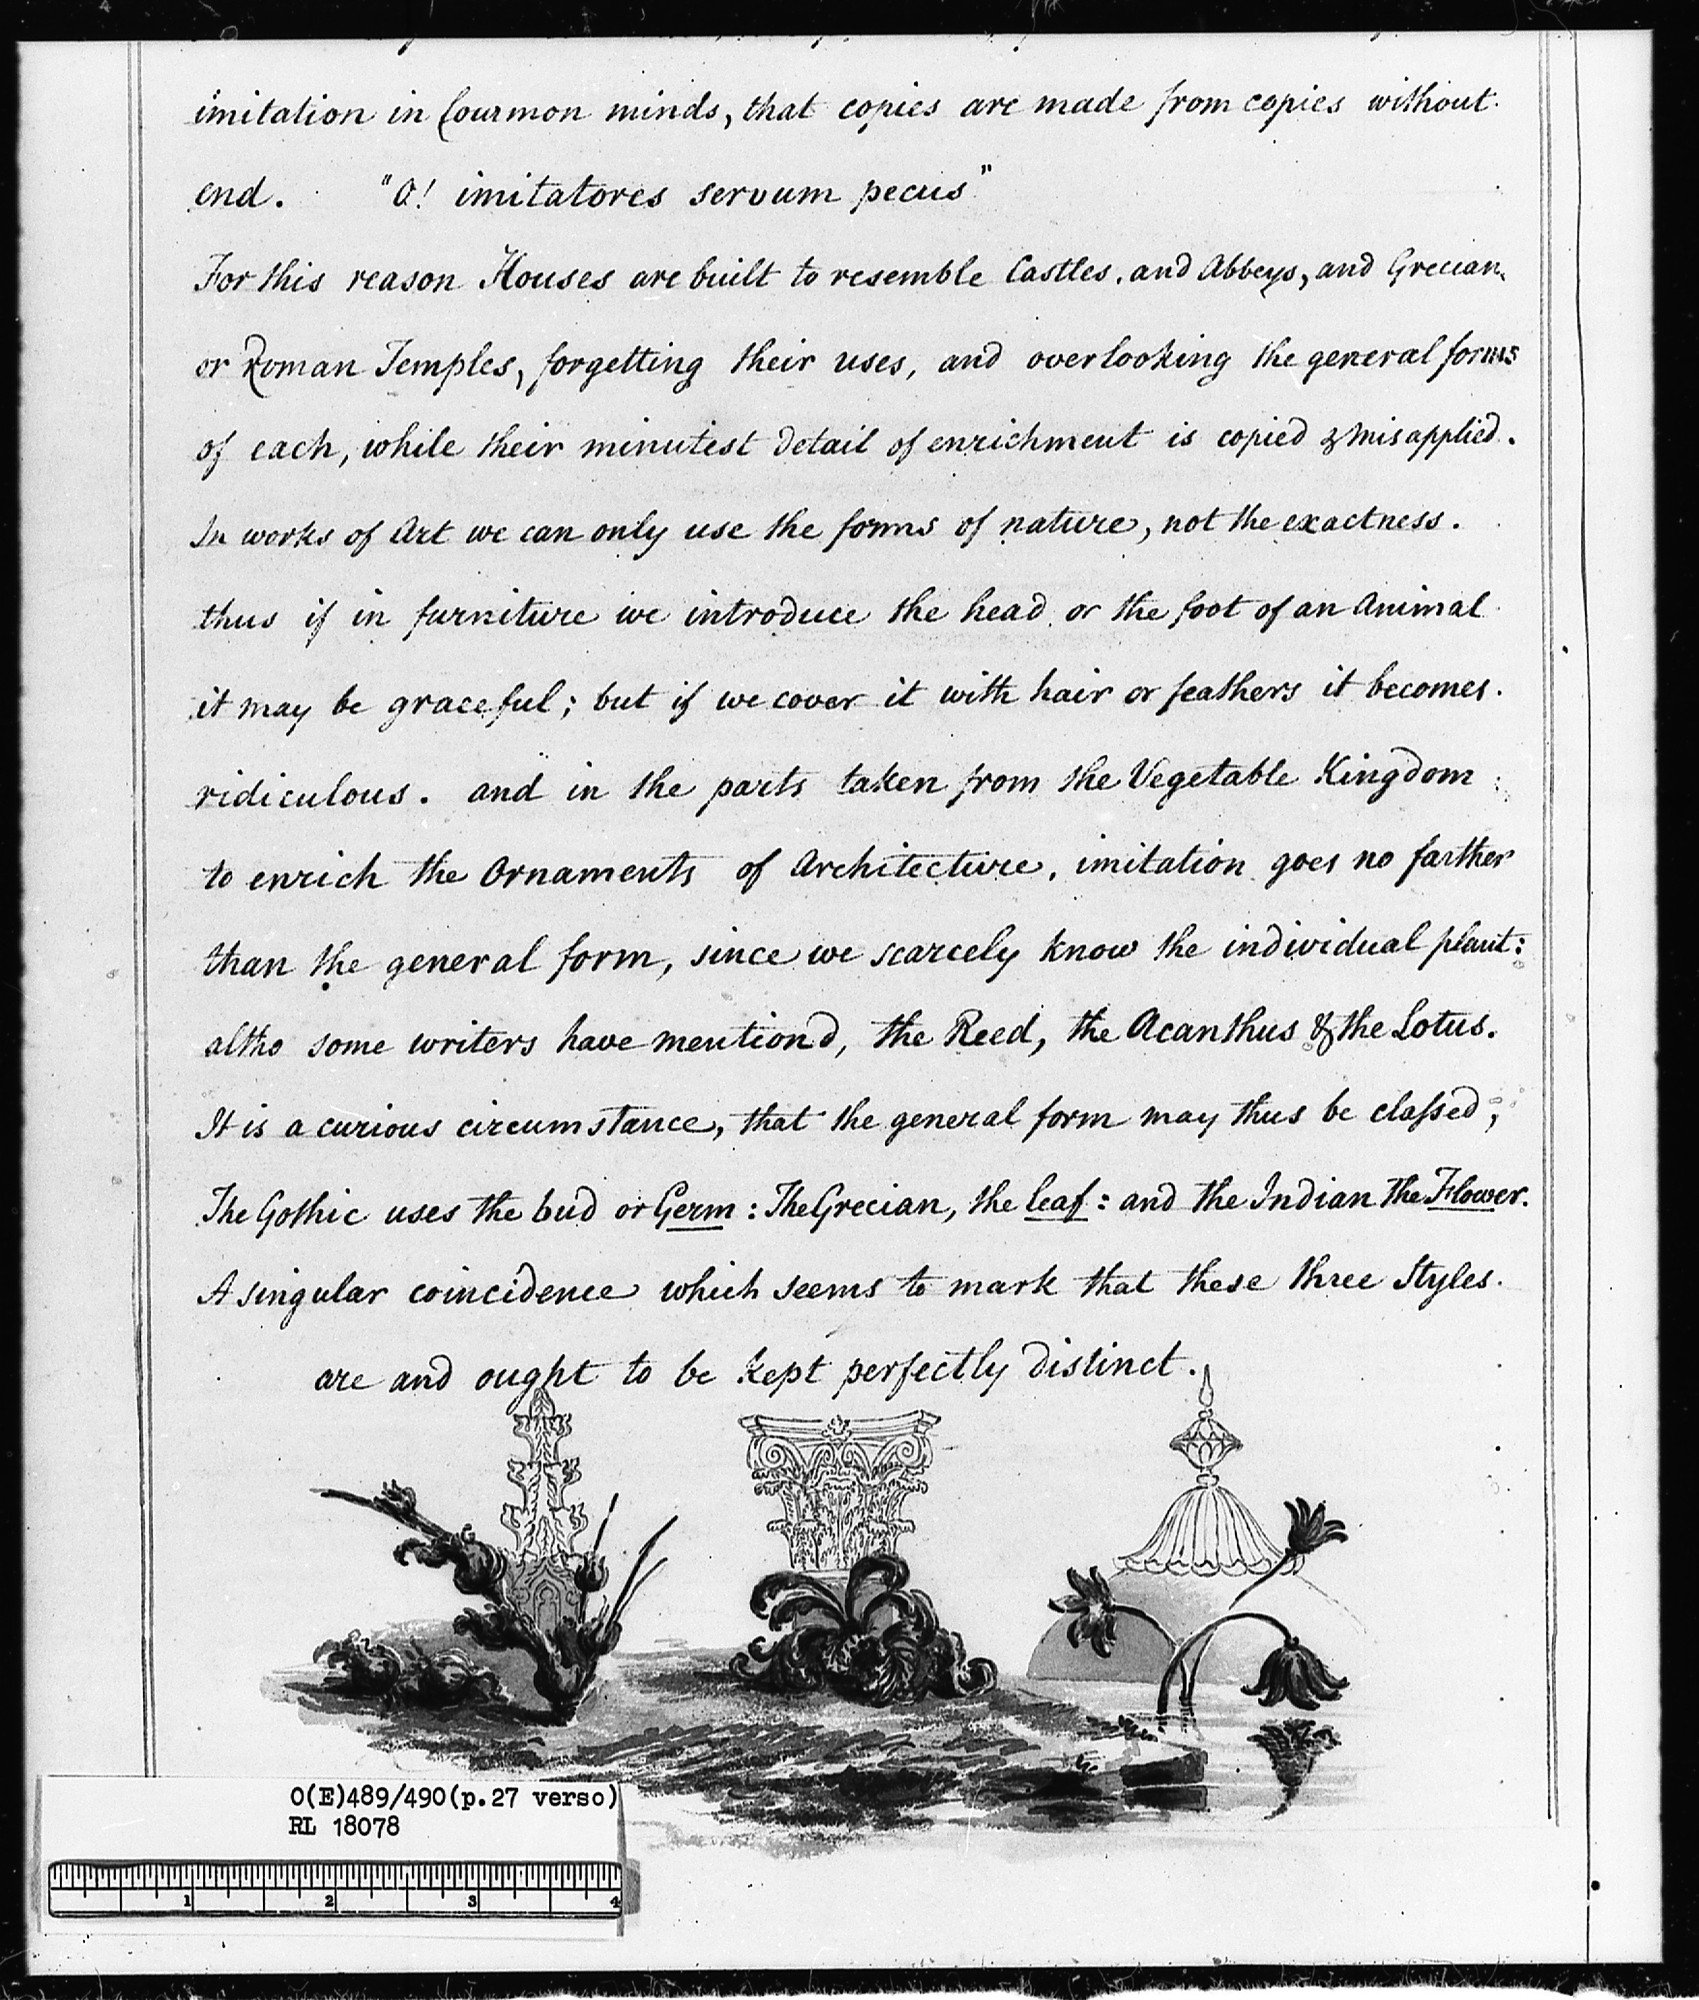 imitation in Common minds, that copies are made from copies without
end. "O! imitatores servum pecus"
For this reason Houses are built to resemble Castles, and Abbeys, and Grecian
or Roman Temples, forgetting their uses, and overlooking the general forms
of each, while their minutest detail of enrichment is copied & misapplied.
In works of Art we can only use the forms of nature, not the exactness.
thus if in furniture we introduce the head or the foot of an Animal
it may be graceful; but if we cover it with hair or feathers it becomes
ridiculous. and in the parts taken from the Vegetable Kingdom
to enrich the Ornaments of Architecture, imitation goes no farther
than the general form, since we scarcely know the individual plant:
altho some writers have mention'd, the Reed, the Acanthus & the Lotus.
It is a curious circumstance, that the general form may thus be classed;
The Gothic uses the bud or Germ: The Grecian, the leaf: and the Indian the Flower.
A singular coincidence which seems to mark that these three Styles
are and ought to be kept perfectly distinct.
O(E)489/490(p.27 verso)
RL 18078
1 2 3 4